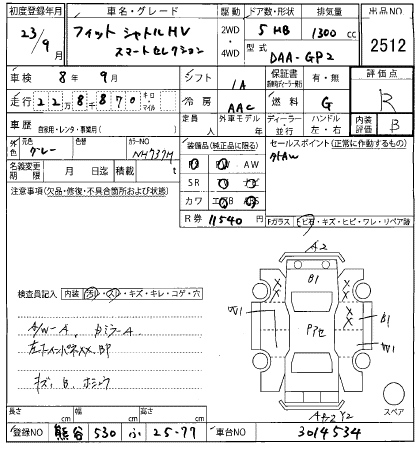 初度登録年月 車名・グレード 駆動 ドア数・形状 排気量 出品NO
23/9月 フィット シャトルHV 2WD 5 HB 1300cc 2512
スマートセレクション 4WD 型式 DAA-GP2
車検 8年 9月 シフト IA 保証書 有・無 評価点
走行 228870 キロ・マイル 冷房 AAC 燃料 G R
車歴 自家用・レンタ・事業用( ) 定員 人 外車モデル 年 ディーラー 並行 ハンドル 左・右 内装評価 B
外色 元色 グレー 色替 カラーNO NH737M 装備品(純正品に限る) セールスポイント(正常に作動するもの)
名義変更期限 月 日迄 積載 t AW
注意事項(欠品・修復・不具合箇所および状態) SR
カワ
R券 11540円 Fガラス 飛石・キズ・ヒビ・ワレ・リペア跡
A2
B1
検査員記入 内装 汚レ・スレ・キズ・キレ・コゲ・穴
W1 P3セ B1
A/W-A カミラーA
W1
キズ、B、ホシュウ
スペア
長さ cm 幅 cm 高さ cm
登録NO 熊谷 530 ふ 25-77 車台NO 3014534